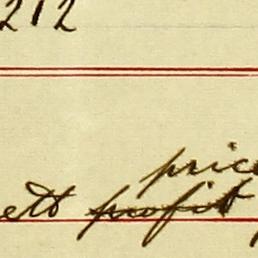 212
price
ett profit